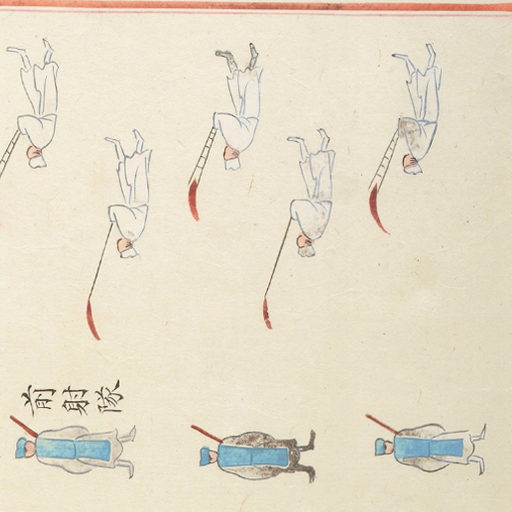 前射隊